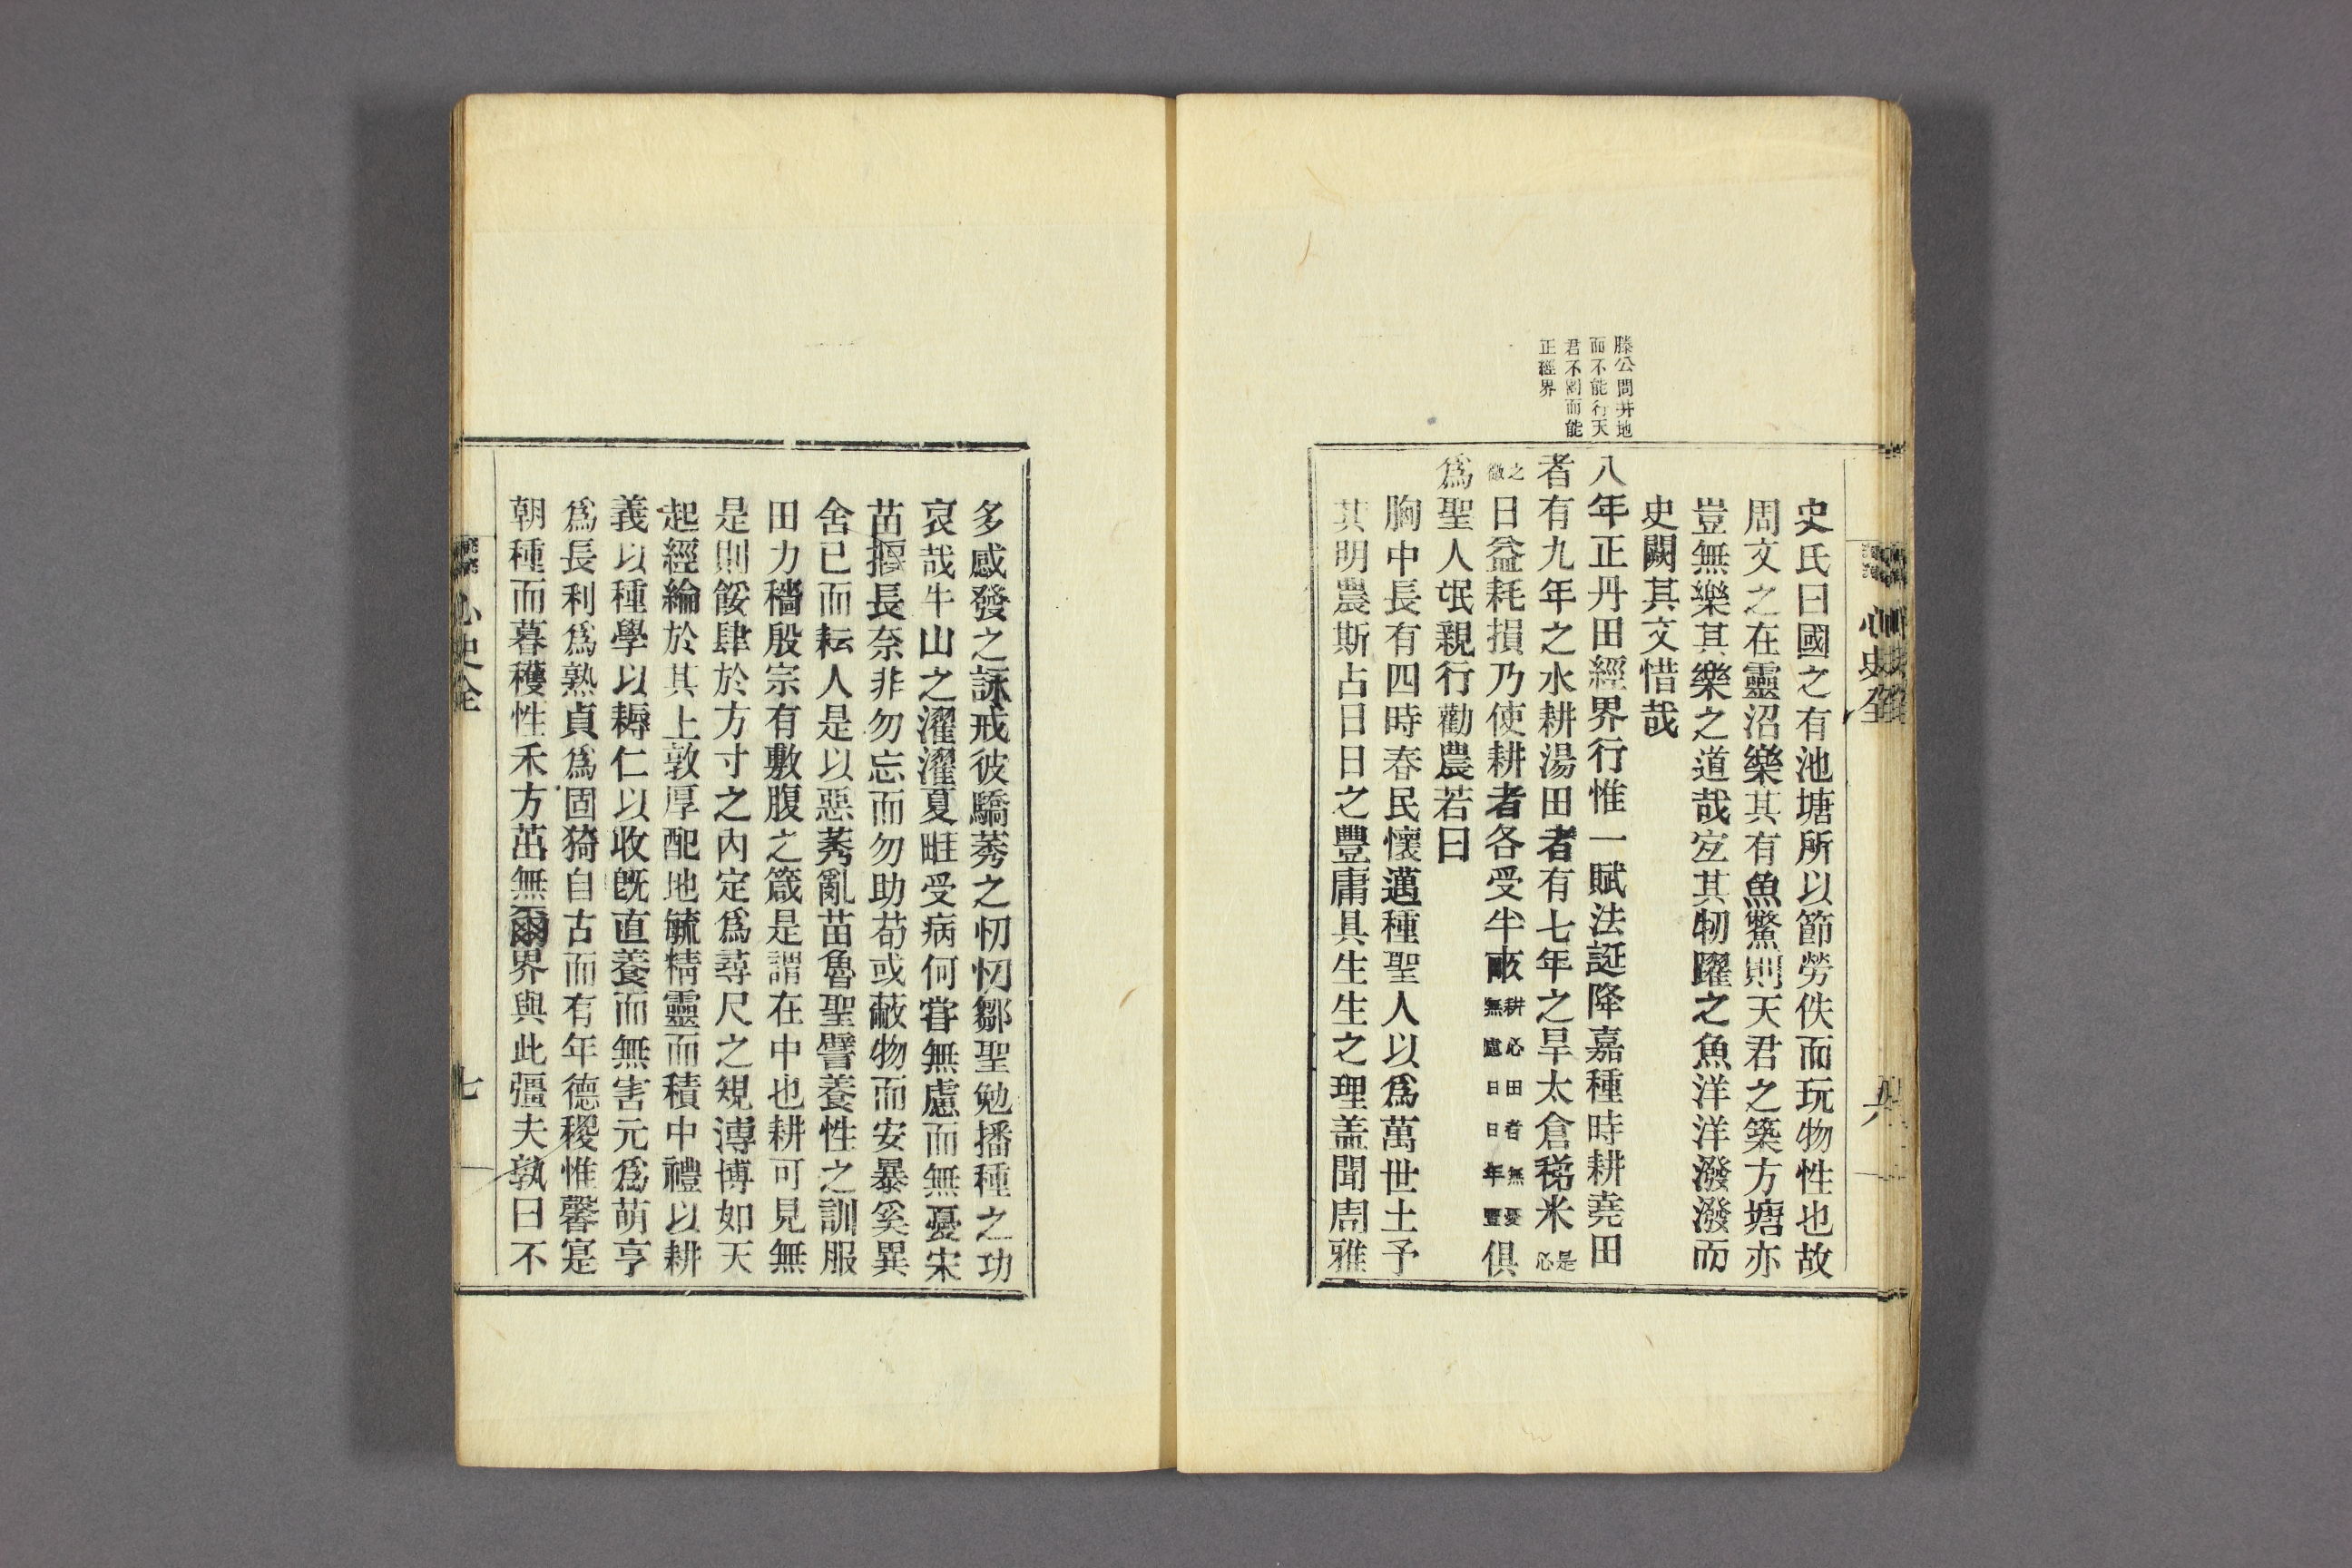 滕公問井地
而不能行天
君不問而能
正經界
心史全
六
史氏曰國之有池塘所以節勞佚而玩物性也故
周文之在靈沼樂其有魚鱉則天君之築方塘亦
豈無樂其樂之道哉宜其牣躍之魚洋洋潑潑而
史闕其文惜哉
八年正丹田經界行惟一賦法誕降嘉種時耕堯田
者有九年之水耕湯田者有七年之旱太倉稊米是心
之徵日益耗損乃使耕者各受半畝耕心田者無憂無慮日日年豐俱
爲聖人氓親行勸農若曰
胸中長有四時春民懷邁種聖人以爲萬世土予
其明農斯占日日之豐庸具生生之理盖聞周雅
多感發之詠戒彼驕莠之忉忉鄒聖勉播種之功
哀哉牛山之濯濯夏畦受病何甞無慮而無憂宋
苗揠長奈非勿忘而勿助苟或蔽物而安暴奚異
舍已而耘人是以惡莠亂苗魯聖譬養性之訓服
田力穡殷宗有敷腹之箴是謂在中也耕可見無
是則餒肆於方寸之內定爲尋尺之䂓溥博如天
起經綸於其上敦厚配地毓精靈而積中禮以耕
義以種學以耨仁以收旣直養而無害元爲萌亨
爲長利爲熟貞爲固猗自古而有年德稷惟馨寔
朝種而暮穫性禾方茁無爾界與此彊夫孰曰不
心史全
七